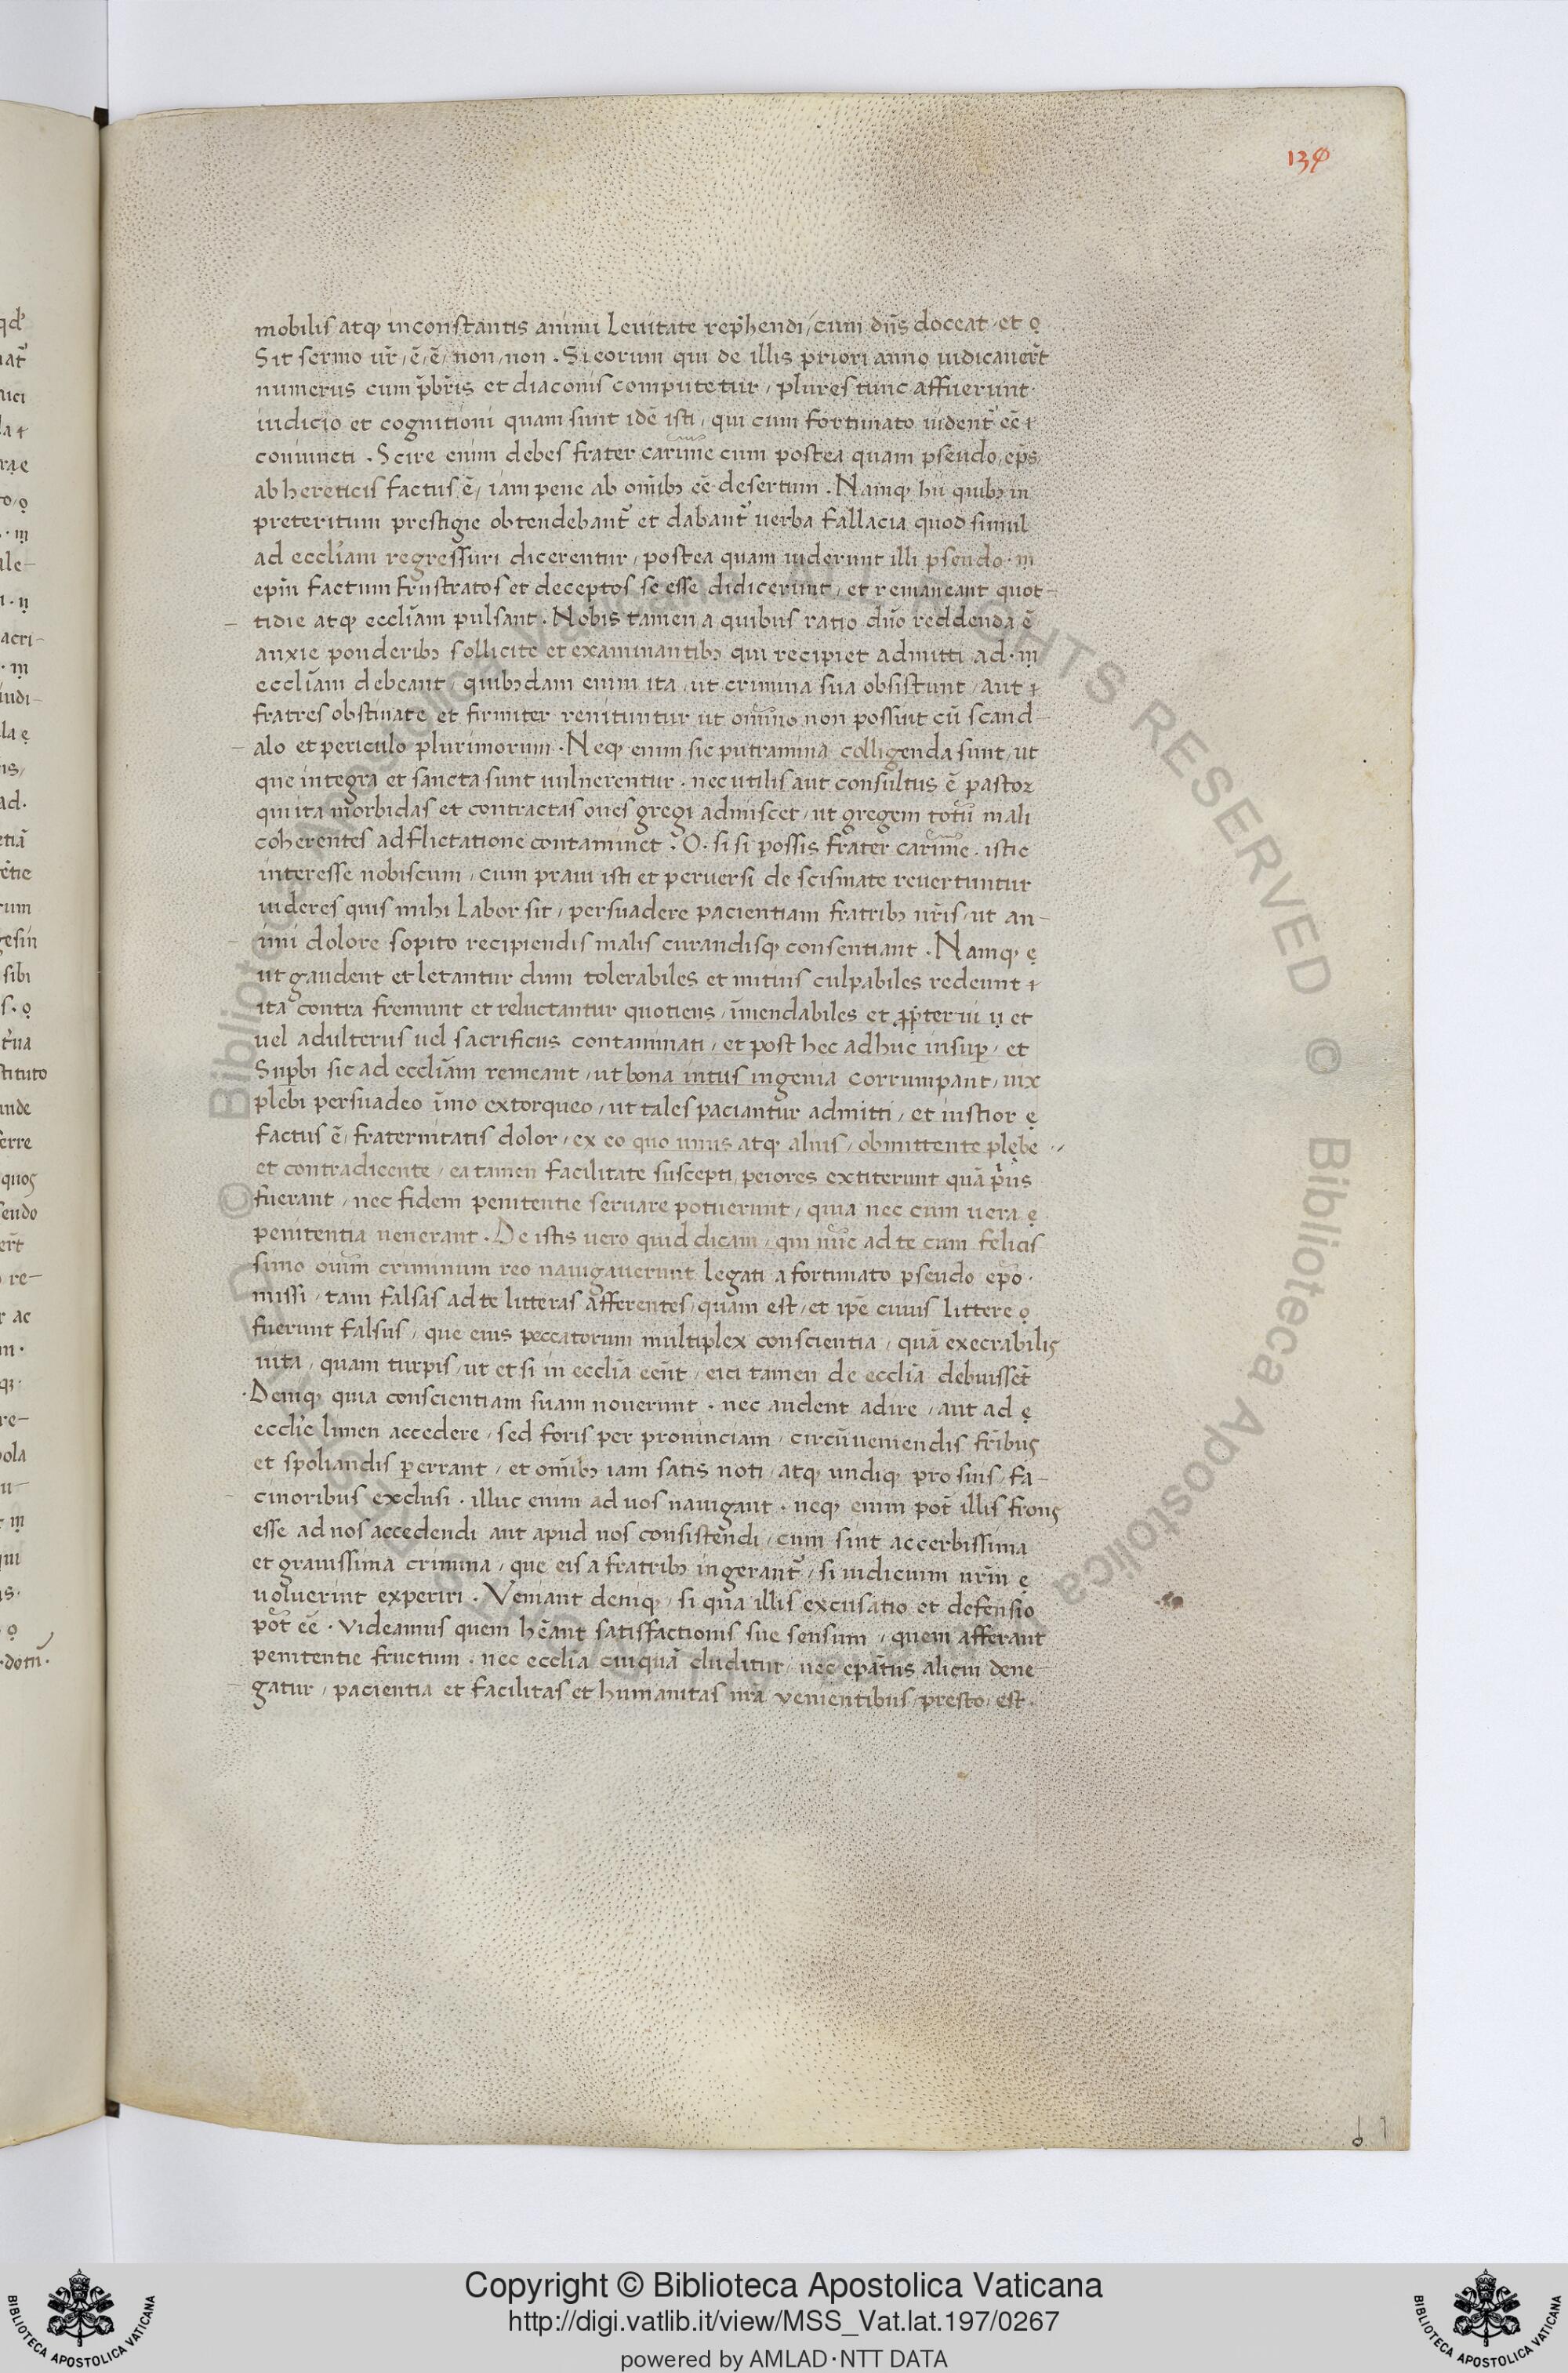 139
mobilis atqꝫ inconstantis animi Leuitate rep̄hendi, cum dn̄s doceat et ọ
Sit sermo ur̄, ē, ē, non, non. Si eorum qui de illis priori anno iudicauer̄t
numerus cum p̄br̄is et diaconis computetur, plures tunc affuerunt
iudicio et cognitioni quam sunt idē isti, qui cum fortunato uident᷑ eē
coniuncti. Scire enim debes frater carime cum postea quam pseudo, ep̄s
ab hereticis factus ē, iam pene ab om̄ibꝫ eē desertum. Namqꝫ hii quibꝫ in
preteritum prestigie obtendebant᷑ et dabant᷑ uerba fallacia quod simul
ad eccl̄iam regressuri dicerentur, postea quam uiderunt illi pseudo
ep̄m factum frustratos et deceptos se esse didicerunt, et remaneant quot-
tidie atqꝫ eccliām pulsant. Nobis tamen a quibus ratio dn̄o reddenda ē
anxie ponderibꝫ sollicite et examinantibꝫ qui recipiet admitti ad
eccliām debeant, quibꝫdam enim ita ut crimina sua obsistunt, aut
fratres obstinate et firmiter renituntur ut om̄ino non possint cū scand-
alo et periculo plurimorum. Neqꝫ enim sic putramina colligenda sunt, ut
que integra et sancta sunt uulnerentur. nec utilis aut consultus ē pastor
qui ita morbidas et contractas oues gregi admiscet, ut gregem totū mali
coherentes adflictatione contaminet. O. si si possis frater carime. istic
interesse nobiscum, cum praui isti et peruersi de scismate reuertuntur
uideres quis mihi Labor sit, persuadere pacientiam fratribꝫ nr̄is, ut an-
imi dolore sopito recipiendis malis curandisqꝫ consentiant. Namqꝫ ẹ
ut gaudent et letantur dum tolerabiles et mitius culpabiles redeunt
ita contra fremunt et reluctantur quotiens, īmendabiles et ꝓpterui et
uel adulterus uel sacrificus contaminati, et post hec adhuc insup̱, et
Sup̱bi sic ad eccliām remeant, ut bona intus ingenia corrumpant, uix
plebi persuadeo īmo extorqueo, ut tales paciantur admitti, et iustior ẹ
factus ē, fraternitatis dolor, ex eo quo unus atqꝫ alius, obnittente plebe
et contradicente, ea tamen facilitate suscepti, peiores extiterunt quā p̓us
fuerant, nec fidem penitentie seruare potuerunt, quia nec cum uera ẹ
penitentia uenerant. De istis uero quid dicam, qui nūc ad te cum felicis
simo ouim̄ criminum reo nauigauerunt legati a fortunato pseudo ep̄o.
missi, tam falsas ad te litteras afferentes, quam est, et ip̄e cuius Littere ọ
fuerunt falsus, que eius peccatorum multiplex conscientia, quā execrabilis
uita, quam turpis, ut et si in eccliā eēnt, eici tamen de eccliā debuissēt
Deniqꝫ quia conscientiam suam nouerunt. nec audent adire, aut ad ẹ
eccliē limen accedere, sed foris per prouinciam, circūueniendis fr̄ibus
et spoliandis p̱errant, et om̄ibꝫ iam satis noti, atqꝫ undiqꝫ pro suis, fa-
cinoribus exclusi. illuc enim ad uos nauigant. neqꝫ enim pōt illis frons
esse ad nos accedendi aut apud nos consistendi, cum sint accerbissima
et grauissima crimina, que eis a fratribꝫ ingerant᷑, si iudicium nr̄m ẹ
uoluerint experiri. Veniant deniqꝫ, si qua illis excusatio et defensio
pōt eē. Videamus quem hēant satisfactionis sue sensum, quem afferant
penitentie fructum. nec eccliā cuiquā cluditur, nec ep̄atus alicui dene-
gatur, pacientia et facilitas et humanitas nr̄a venientibus, presto, est.
Copyright © Biblioteca Apostolica Vaticana
http://digi.vatlib.it/view/MSS_Vat.lat.197/0267
powered by AMLAD·NTT DATA